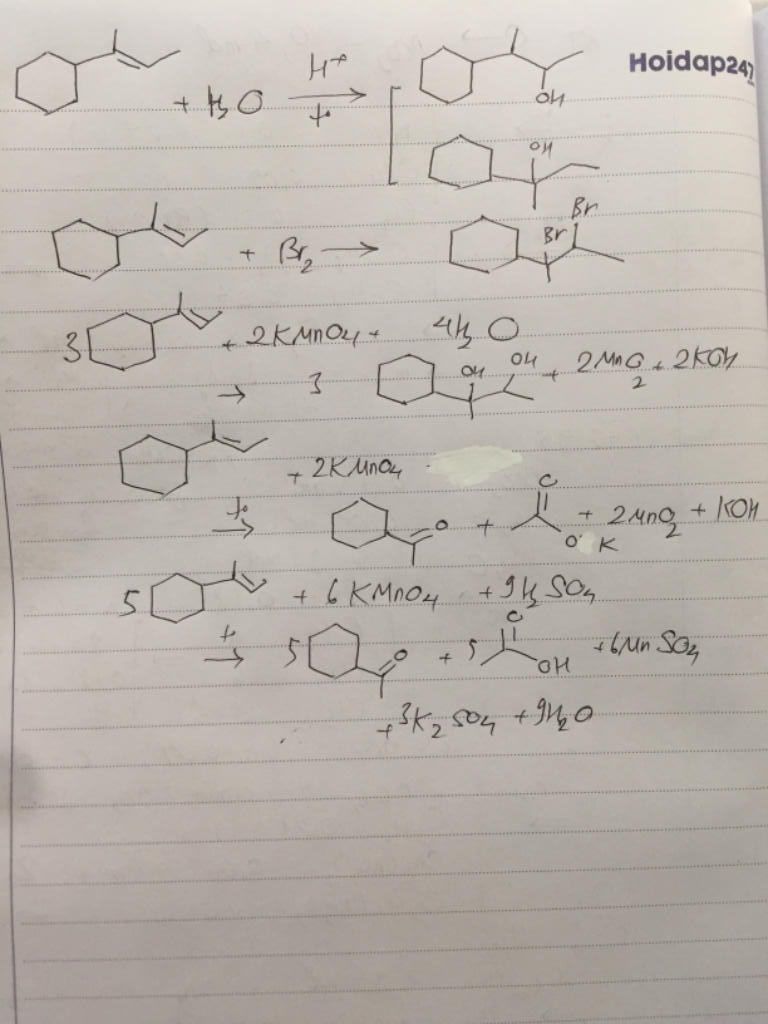 Hoidap247
+ H2O H+ t° OH
OH
+ Br2 → Br Br
3 + 2KMnO4 + 4H2O
→ 3 OH OH + 2MnO2 + 2KOH
+ 2KMnO4
t° → O + O O K + 2MnO2 + KOH
5 + 6KMnO4 + 9H2SO4
t → 5 O + 5 O OH + 6MnSO4
+ 3K2SO4 + 9H2O